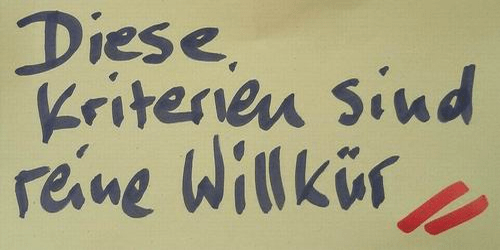 Diese
Kriterien sind
reine Willkür